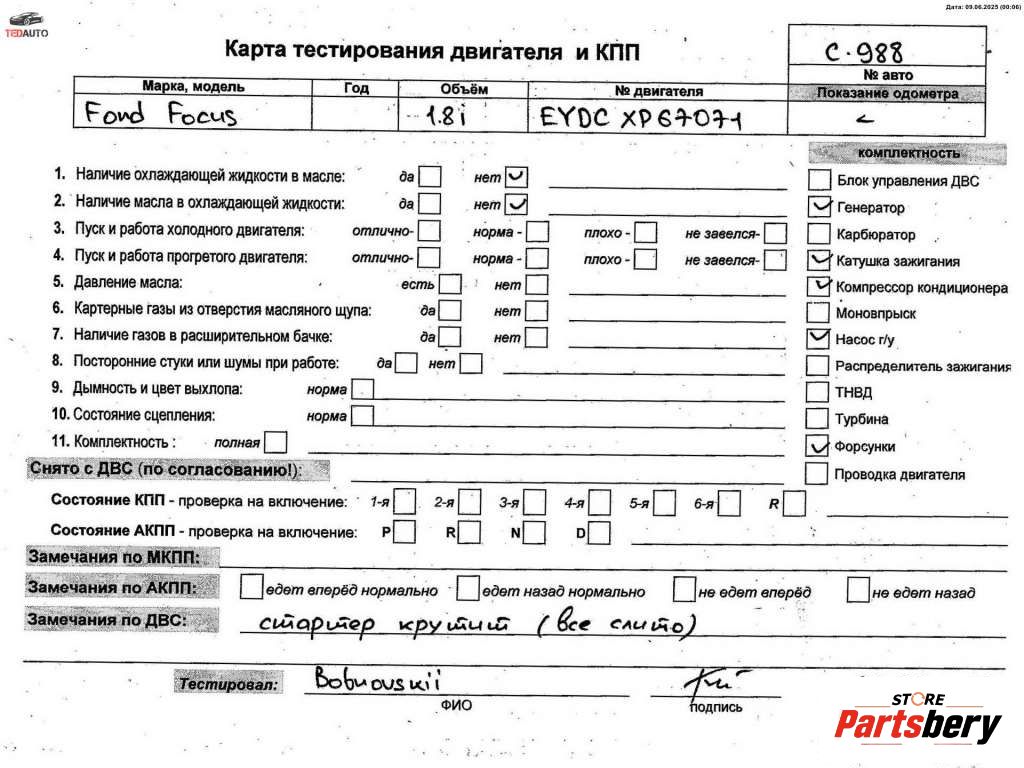 Дата: 09.06.2025 (00:06)
TEDAUTO
Карта тестирования двигателя и КПП
C-988
№ авто
Марка, модель Год Объём № двигателя Показание одометра
Ford Focus 1.8i EYDC XP67071
комплектность
1. Наличие охлаждающей жидкости в масле: да нет
2. Наличие масла в охлаждающей жидкости: да нет
3. Пуск и работа холодного двигателя: отлично- норма - плохо - не завелся-
4. Пуск и работа прогретого двигателя: отлично- норма - плохо - не завелся-
5. Давление масла: есть нет
6. Картерные газы из отверстия масляного щупа: да нет
7. Наличие газов в расширительном бачке: да нет
8. Посторонние стуки или шумы при работе: да нет
9. Дымность и цвет выхлопа: норма
10. Состояние сцепления: норма
11. Комплектность : полная
Блок управления ДВС
Генератор
Карбюратор
Катушка зажигания
Компрессор кондиционера
Моновпрыск
Насос г/у
Распределитель зажигания
ТНВД
Турбина
Форсунки
Проводка двигателя
Снято с ДВС (по согласованию!):
Состояние КПП - проверка на включение: 1-я 2-я 3-я 4-я 5-я 6-я R
Состояние АКПП - проверка на включение: P R N D
Замечания по МКПП:
Замечания по АКПП: едет вперёд нормально едет назад нормально не едет вперёд не едет назад
Замечания по ДВС: стартер крутит (все слито)
Тестировал: Bobnovskii
ФИО подпись
STORE
Partsbery